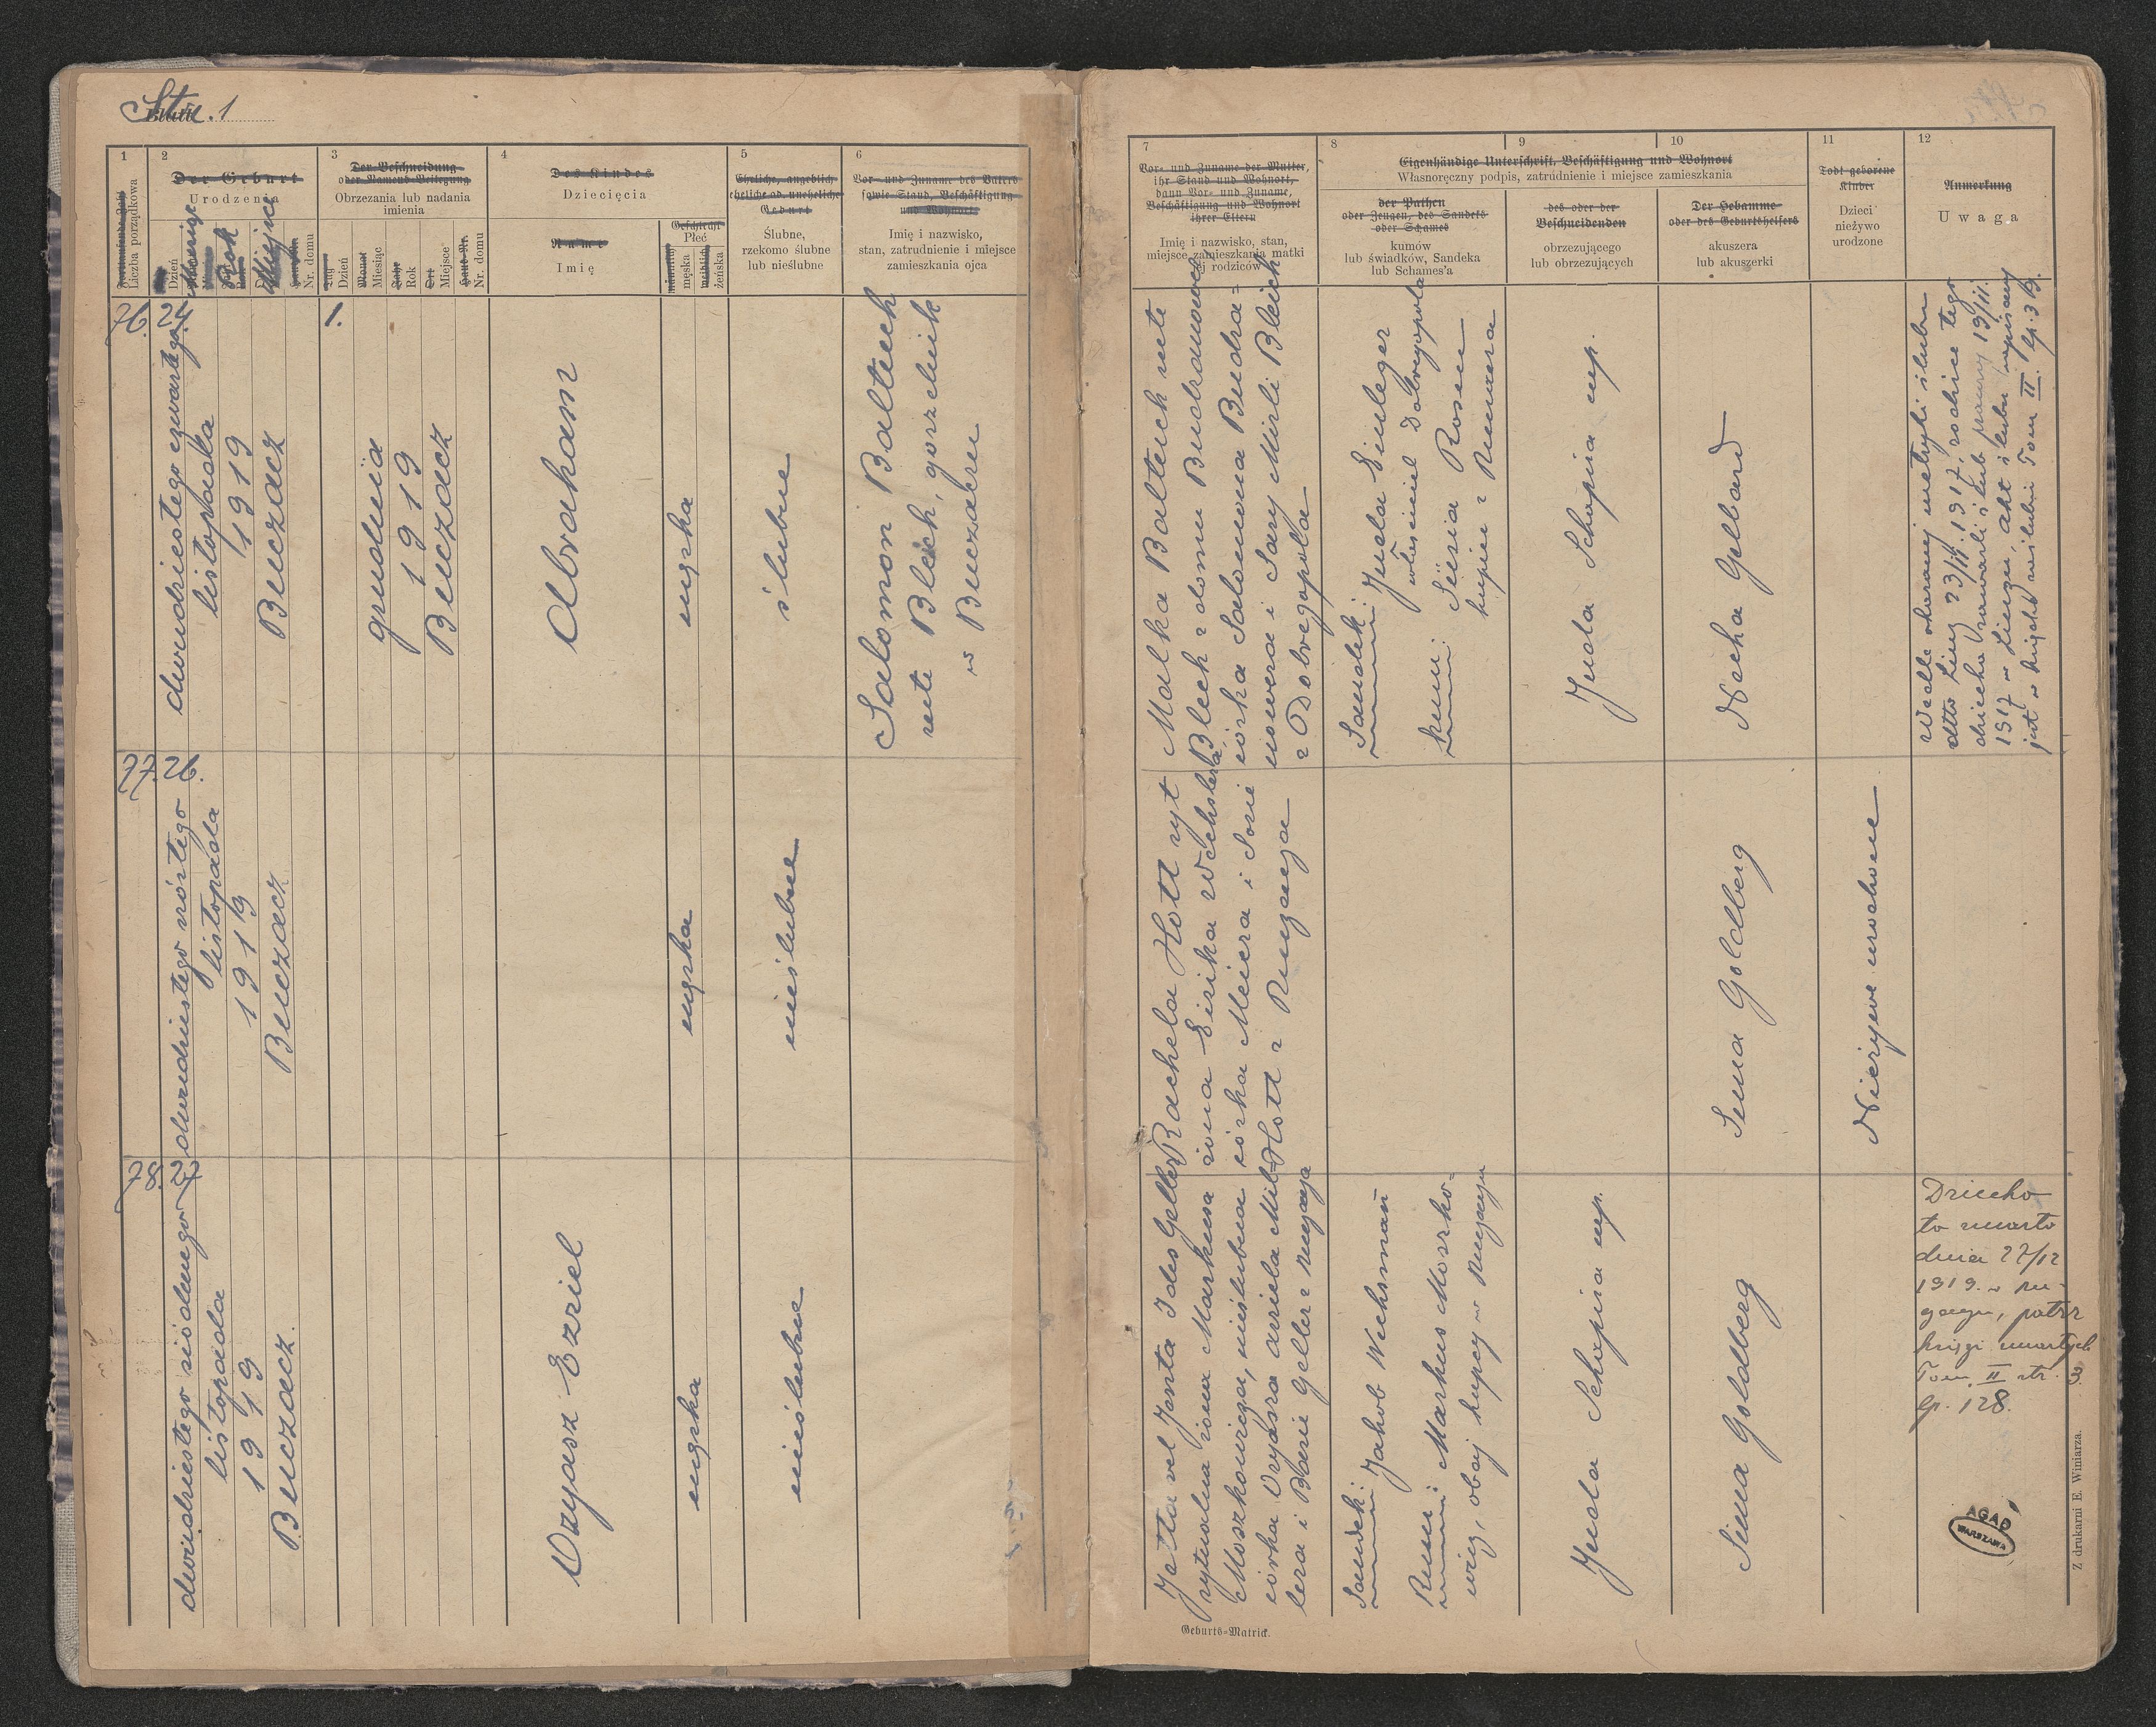 Str. 1
1
2
3
4
5
6
Fortlaufende Zahl
Liczba porządkowa
Der Geburt
Urodzenia
Dzień
Miesiąc
Rok
Miejsce
Nr. domu
Der Beschneidung
oder Namens-Beilegung
Obrzezania lub nadania
imienia
Tag
Dzień
Monat
Miesiąc
Jahr
Rok
Ort
Miejsce
Haus-Nr.
Nr. domu
Des Kindes
Dziecięcia
Name
Imię
Geschlecht
Płeć
männlich
męska
weiblich
żeńska
Eheliche, angeblich
eheliche od. uneheliche
Geburt
Ślubne,
rzekomo ślubne
lub nieślubne
Vor- und Zuname des Vaters
sowie Stand, Beschäftigung
und Wohnort
Imię i nazwisko,
stan, zatrudnienie i miejsce
zamieszkania ojca
7
8
9
10
11
12
Vor- und Zuname der Mutter,
ihr Stand und Wohnort,
dann Vor- und Zuname,
Beschäftigung und Wohnort
ihrer Eltern
Imię i nazwisko, stan,
miejsce zamieszkania matki
jej rodziców
Eigenhändige Unterschrift, Beschäftigung und Wohnort
Własnoręczny podpis, zatrudnienie i miejsce zamieszkania
der Pathen
oder Zeugen, des Sandeks
oder Schames
kumów
lub świadków, Sandeka
lub Schames'a
des oder der
Beschneidenden
obrzezującego
lub obrzezujących
Der Hebamme
oder des Geburtshelfers
akuszera
lub akuszerki
Todt geborene
Kinder
Dzieci
nieżywo
urodzone
Anmerkung
Uwaga
76.
24.
dwudziestego czwartego
listopada
1919
Buczacz
1.
grudnia
1919
Buczacz
Abraham
męska
ślubne
Salomon Baltuch
rete Blech, gorzelnik
w Buczaczu
Malka Baltuch rete
Blech z domu Budzanower
córka Salomona Budza-
nowera i Sary Mirli Blech
z Dobregopola
Sandek:
Juda Einleger
właściciel Dobregopola
kum:
Süsia Rosen
kupiec z
Juda Schapira mp.
Necha Gelbard
Wedle okazanej metryki ślubu
1917, rodzice tego
dziecka zawarli ślub
1917 w akt ślubu wpisany
jest w księdze ślubów Tom II. lp. 3
77.
26.
dwudziestego szóstego
listopada
1919
Buczacz
męska
nieślubne
Rachela Hott ryt
żona Eisika Wechslera
córka Meiera i Sosie
Hott z Pużnik
Sima Goldberg
Nieżywe urodzone
78.
27
dwudziestego siódmego
listopada
1919
Buczacz.
Ozyasz Ezriel
męska
nieślubne
Jetta vel Jenta Ides Geller
rytualna żona Markusa
Moszkowicza, nieślubna
córka Ozyasza Azriela Mil-
lera i Basie Geller z
Sandek:
Jakob Wechsman
Kum:
Markus Moszko-
wicz, obaj kupcy w
Juda Schapira mp.
Sima Goldberg
Dziecko
to zmarło
dnia 27/12
1919. w
patrz
księgi zmarłych
Tom II str. 3
lp. 128.
AGAD
WARSZAWA
Geburts-Matrick.
Z drukarni E. Winiarza.